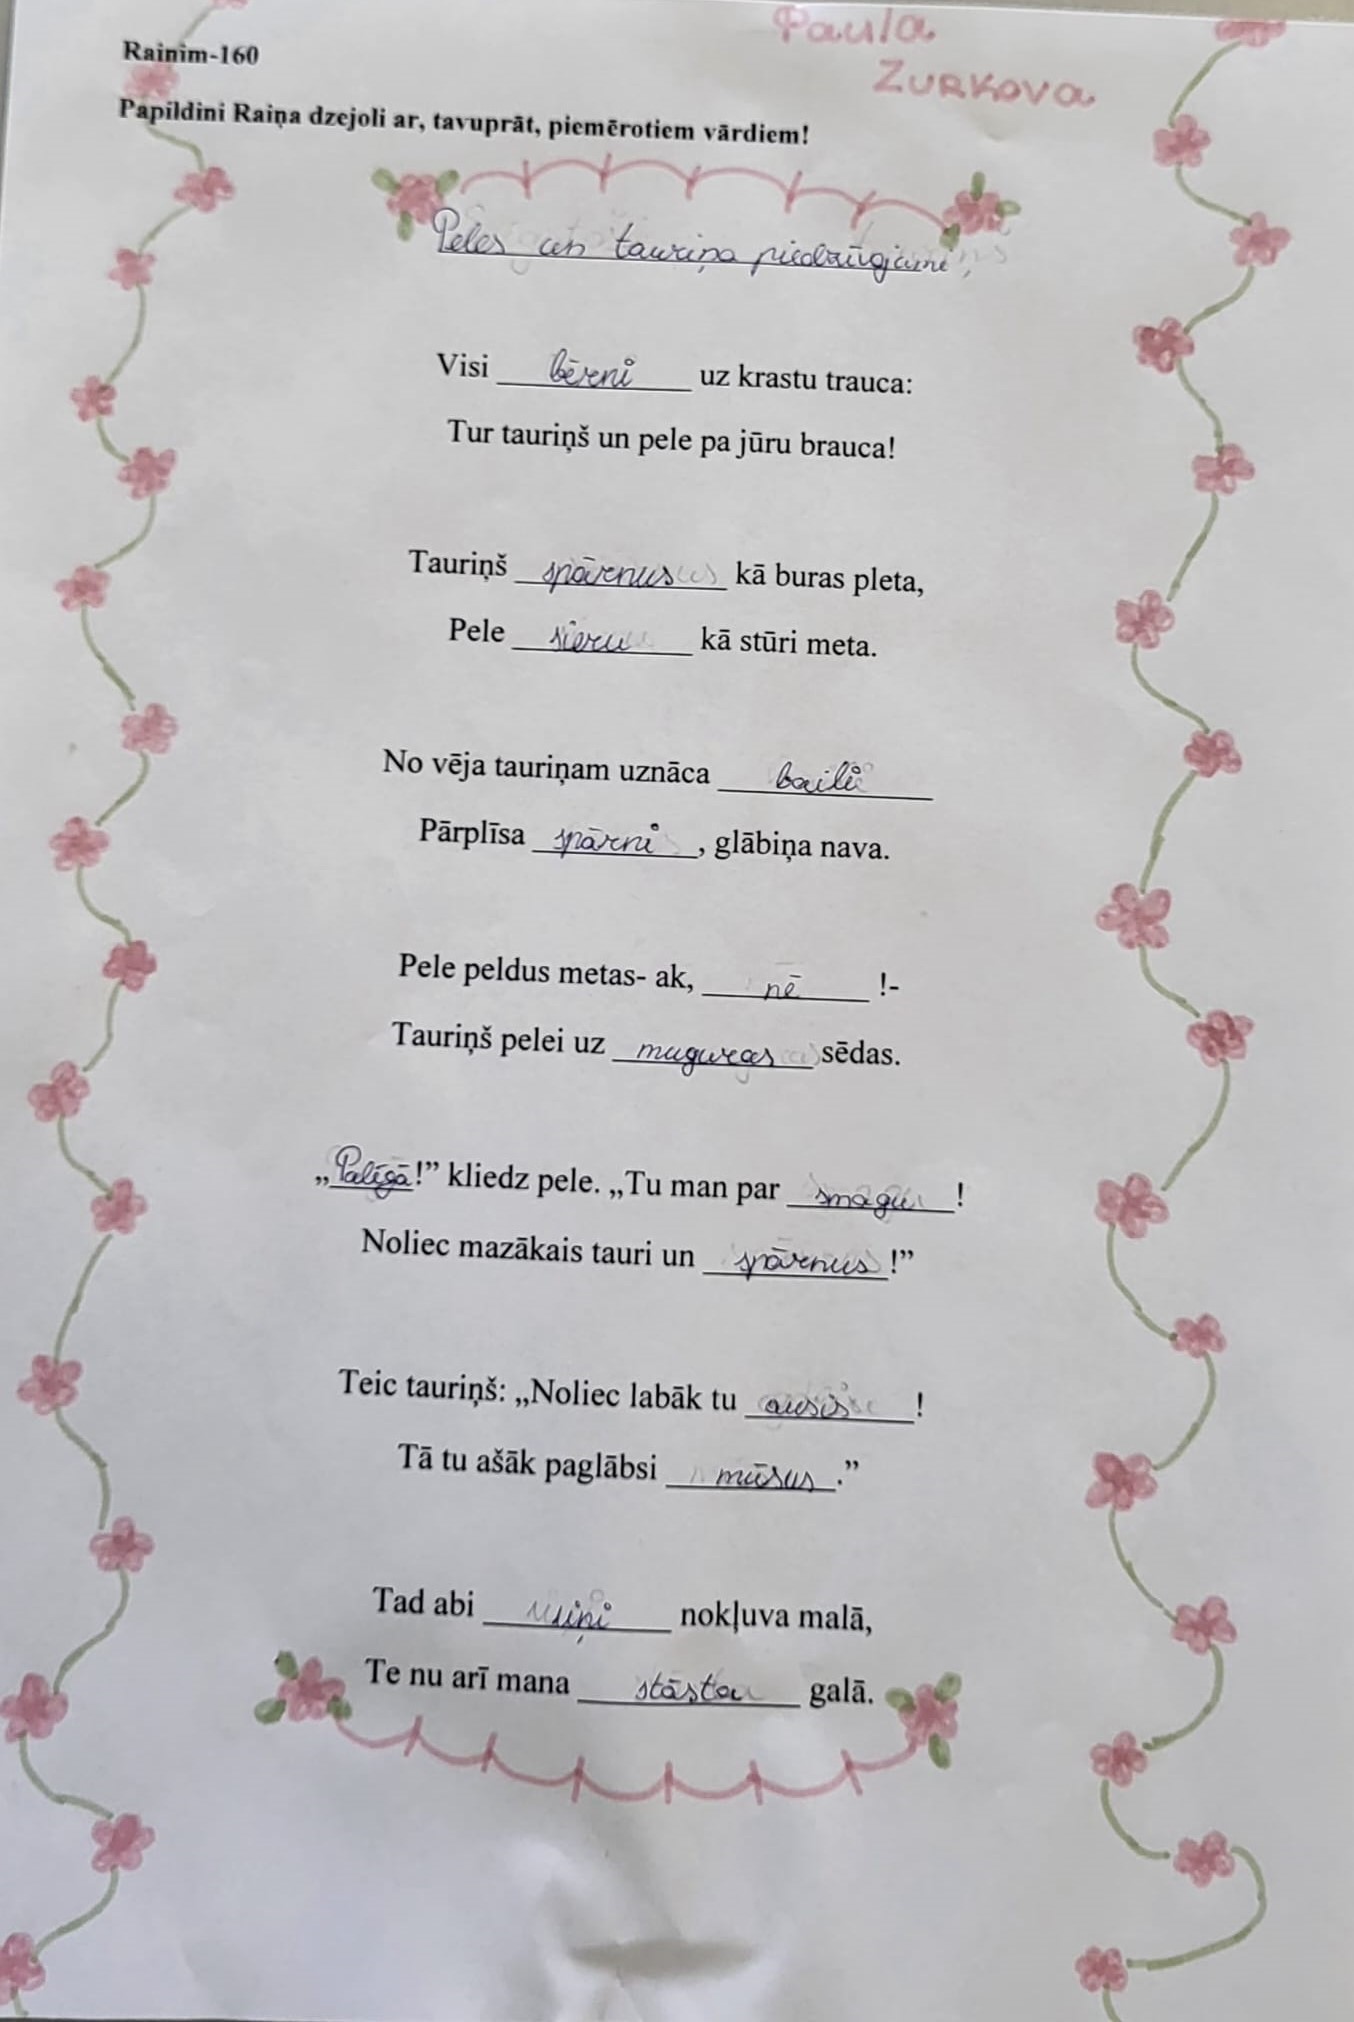 Paula
Rainim-160
ZURKOVA
Papildini Raiņa dzejoli ar, tavuprāt, piemērotiem vārdiem!
Peles un tauriņa piedzīvojumi
Visi bērni uz krastu trauca:
Tur tauriņš un pele pa jūru brauca!
Tauriņš spārnus kā buras pleta,
Pele sieru kā stūri meta.
No vēja tauriņam uznāca baili
Pārplīsa spārni, glābiņa nava.
Pele peldus metas- ak, nē !-
Tauriņš pelei uz muguras sēdas.
„Palīgā!” kliedz pele. „Tu man par smagu !
Noliec mazākais tauri un spārnus!”
Teic tauriņš: „Noliec labāk tu ausis !
Tā tu ašāk paglābsi mūsus.”
Tad abi viņi nokļuva malā,
Te nu arī mana stāsta galā.